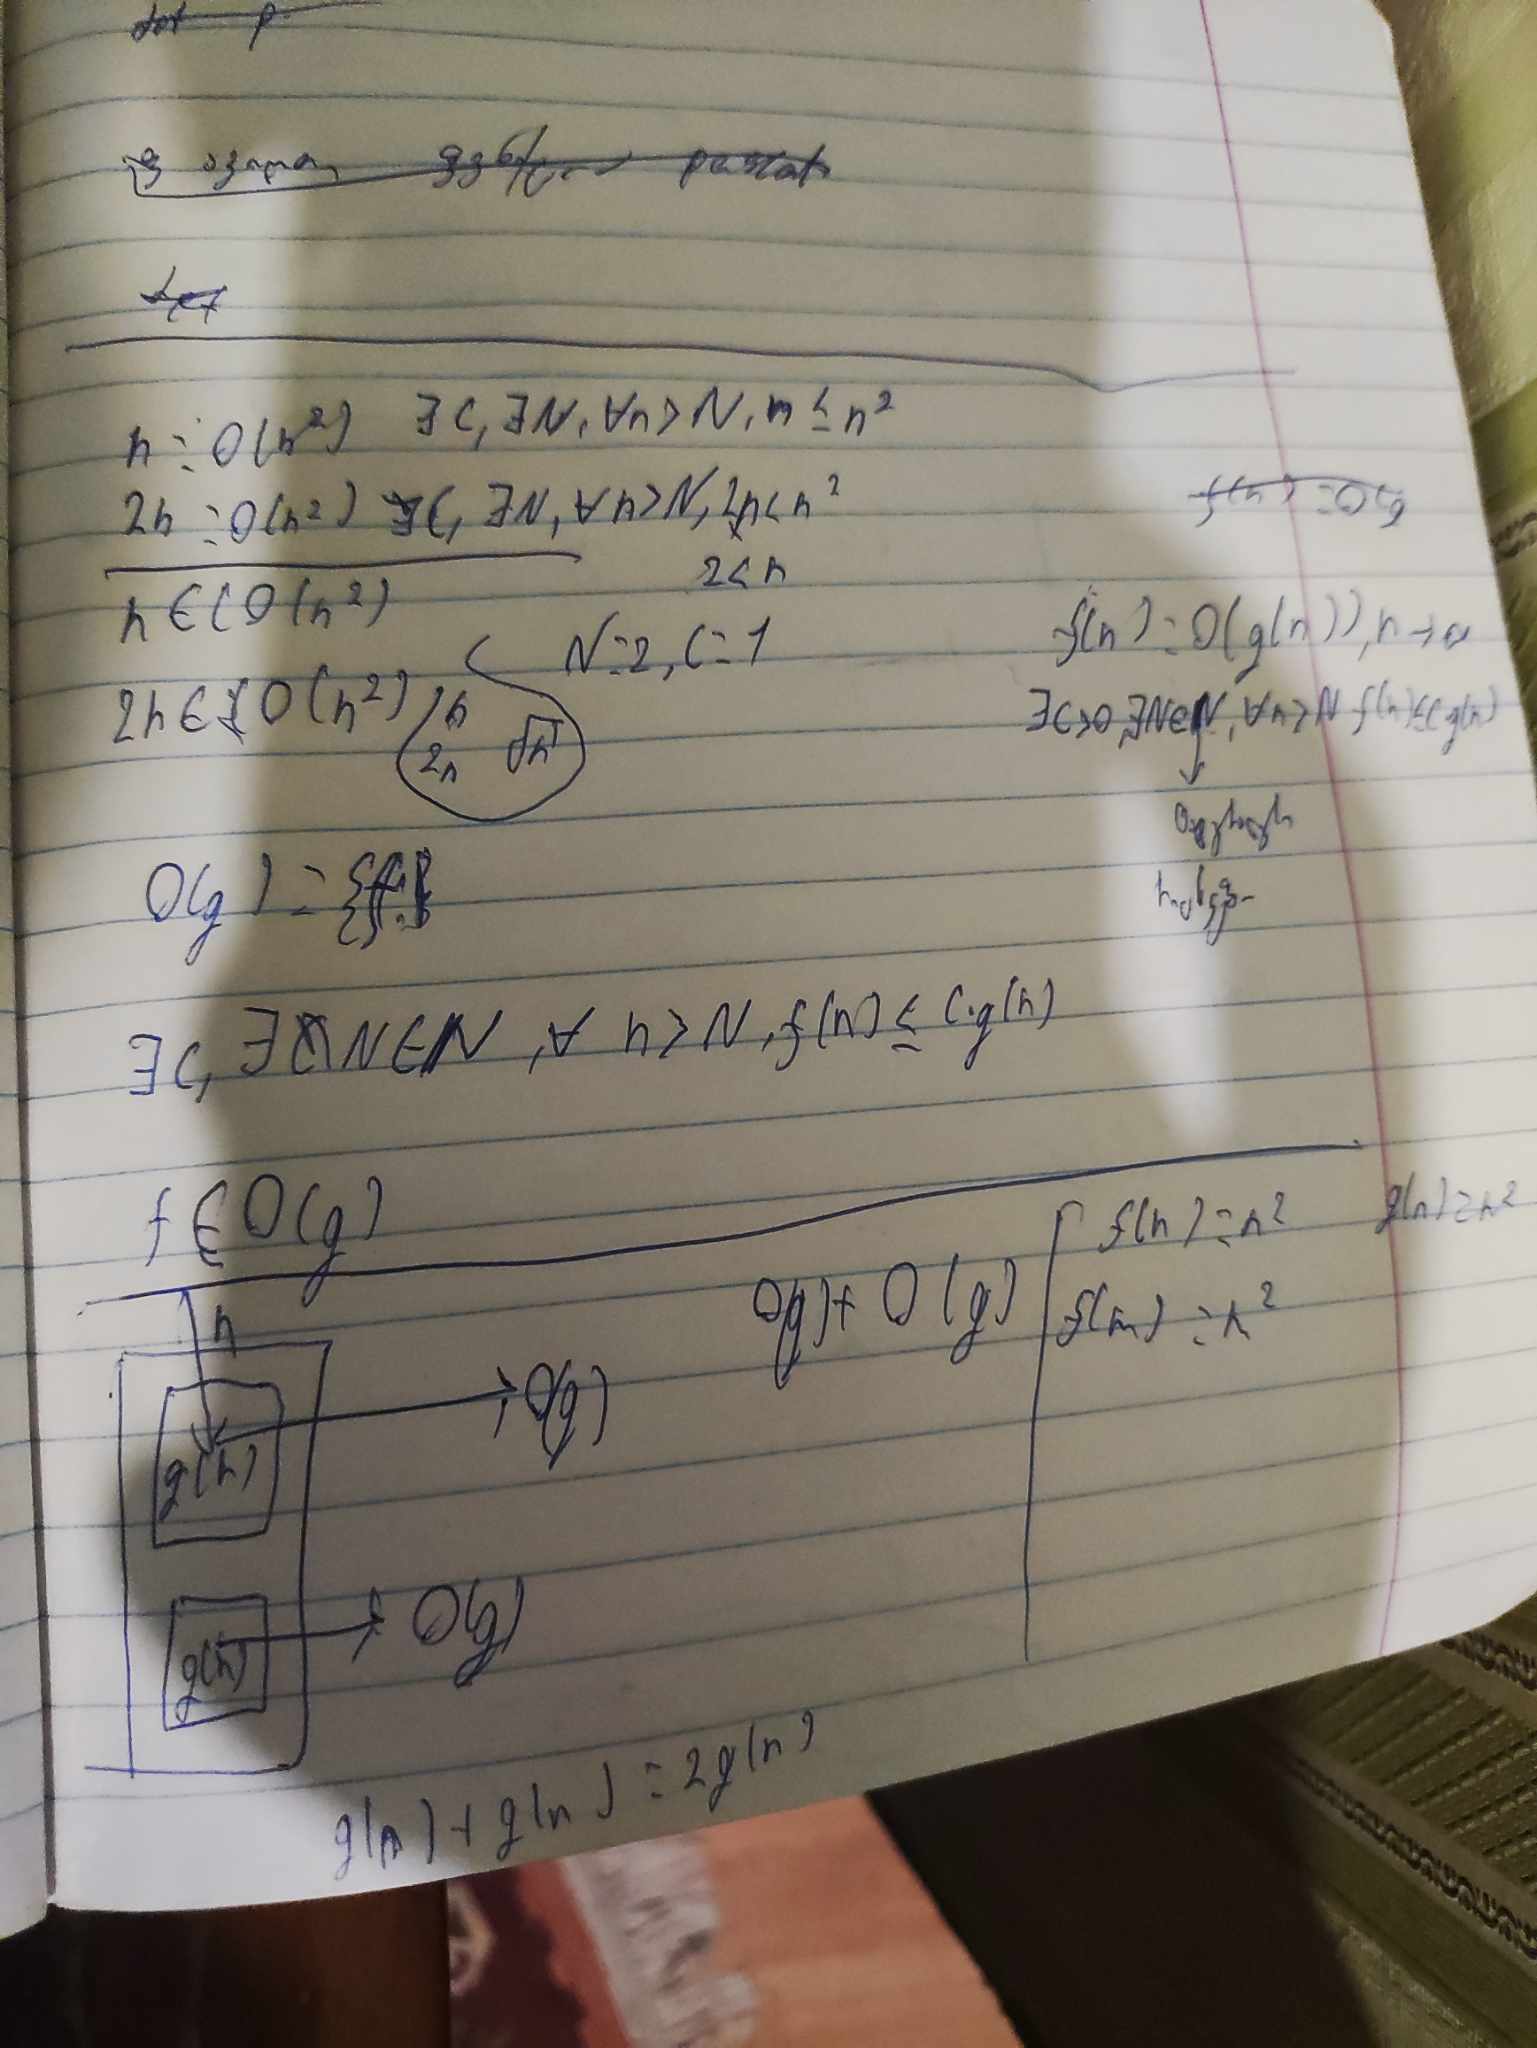 n = O(n²) ∃C, ∃N, ∀n>N, n ≤ n²
2n = O(n²) ∃C, ∃N, ∀n>N, 2n<n²
2<n
n ∈ O(n²)
N=2, C=1
2n ∈ O(n²)
n
2n √n
f(n) = O(g
f(n) = O(g(n)), n→∞
∃C>0, ∃N∈ℕ, ∀n>N f(n)≤C g(n)
O(g) = {f:}
∃C, ∃N∈ℕ, ∀ n>N, f(n) ≤ C·g(n)
f ∈ O(g)
n
g(n) → O(g)
g(n) → O(g)
O(g) + O(g)
f(n) = n² g(n) = n²
f(n) = n²
g(n) + g(n) = 2g(n)